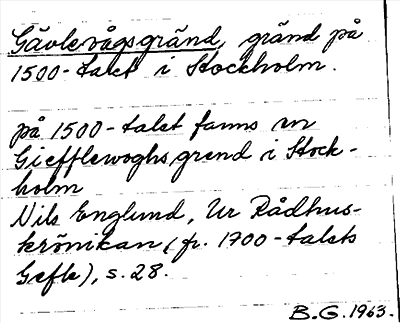 Gävlevågsgränd, gränd på
1500-talet i Stockholm.
på 1500-talet fanns en
Giefflewoghs grend i Stock-
holm
Nils Englund, Ur Rådhus-
krönikan (fr. 1700-talets
Gefle), s. 28.
B.G. 1963.